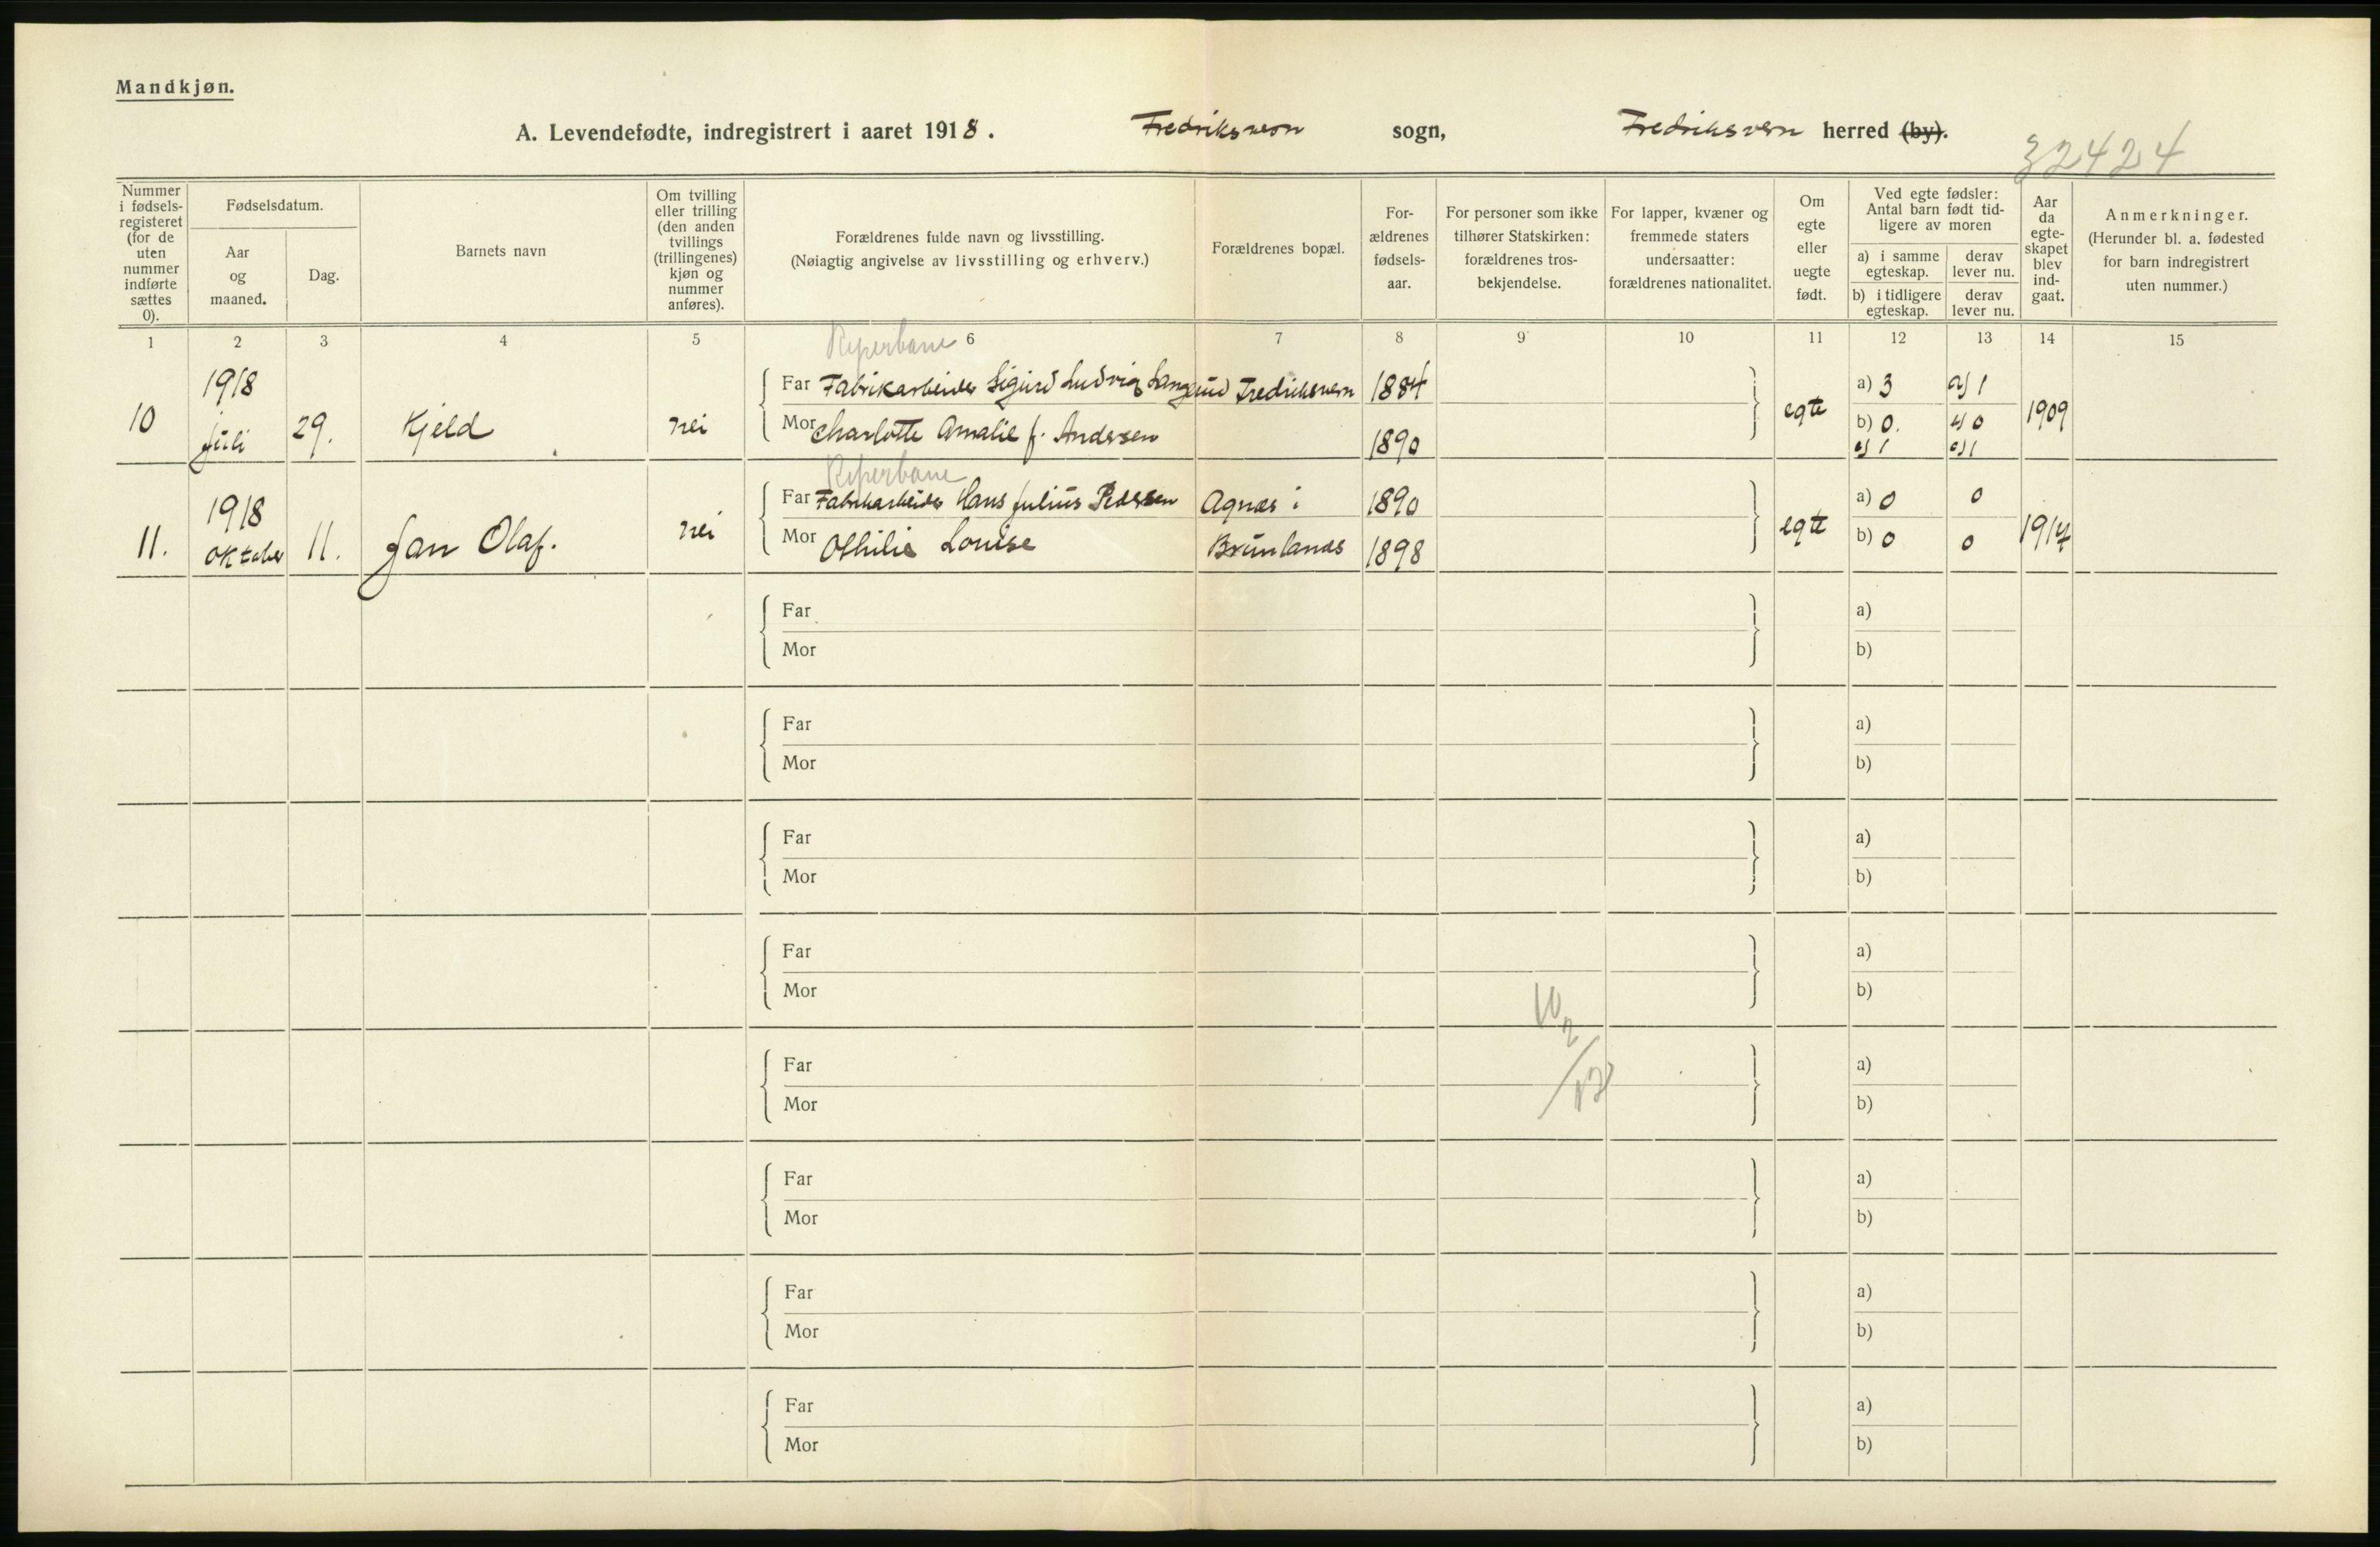 Mandkjøn.
A. Levendefødte, indregistrert i aaret 1918. Fredriksvern sogn, Fredriksvern herred (by).
32424
Nummer i fødsels-registeret (for de uten nummer indførte sættes 0).
Fødselsdatum.
Aar og maaned.
Dag.
Barnets navn
Om tvilling eller trilling (den anden tvillings (trillingenes) kjøn og nummer anføres).
Forældrenes fulde navn og livsstilling.
(Nøiagtig angivelse av livsstilling og erhverv.)
Forældrenes bopæl.
For-ældrenes fødsels-aar.
For personer som ikke tilhører Statskirken: forældrenes tros-bekjendelse.
For lapper, kvæner og fremmede staters undersaatter: forældrenes nationalitet.
Om egte eller uegte født.
Ved egte fødsler: Antal barn født tid-ligere av moren
a) i samme egteskap.
derav lever nu.
b) i tidligere egteskap.
derav lever nu.
Aar da egte-skapet blev ind-gaat.
Anmerkninger.
(Herunder bl. a. fødested for barn indregistrert uten nummer.)
1 2 3 4 5 6 7 8 9 10 11 12 13 14 15
Reperbane
1918 Far Fabrikarbeider Sigurd Ludvig Langerud Fredriksvern 1884 a) 3 a) 1
10 juli 29. Kjeld nei Mor Charlotte Amalie f. Andersen 1890 egte b) 0. 0 1909
1 1
Reperbane
1918 Far Fabrikarbeider Hans Julius Pedersen Agnes i 1890 a) 0 0
11. oktober 11. Jan Olaf. nei Mor Othilie Louise Brunlanes 1898 egte b) 0 0 1917
Far a)
Mor b)
Far a)
Mor b)
Far a)
Mor b)
Far a)
Mor b)
10
Far a)
Mor b)
Far a)
Mor b)
Far a)
Mor b)
Far a)
Mor b)